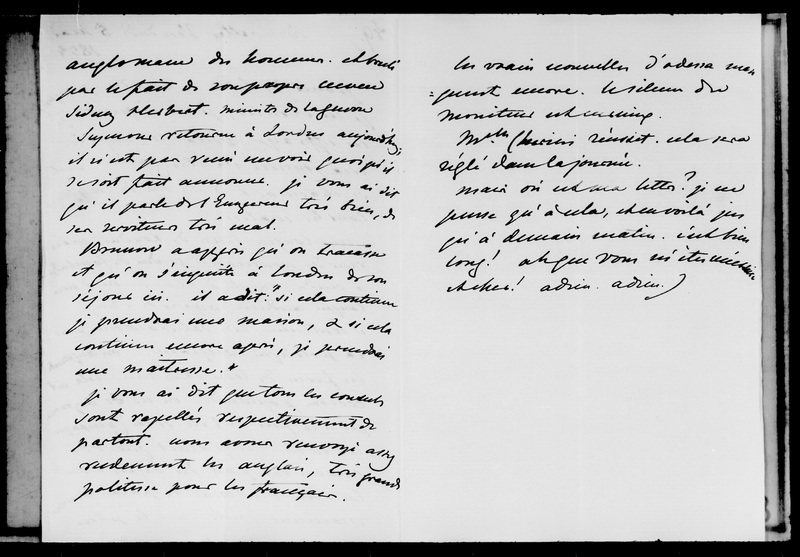 anglomane des hommes. et brulé
par le fait de son propre neveu
Sidney Herbert. ministre de la guerre
Seymour retourne à Londres aujourd'hui,
il n'est pas venu me voir quoiqu'il
se soit fait annoncer. je vous ai dit
qu'il parle de l'Empereur très bien, de
ses serviteurs très mal.
Brunnow a appris qu'on tracasse
et qu'on s'inquiète à Londres de son
séjour ici. il a dit. "si cela continue
je prendrai une maison, & si cela
continue encore après, je prendrai
une maitresse."
je vous ai dit que tous les consuls
sont rappellés respectivement de
partout. nous avons renvoyé assez
rudement les anglais, très grande
politesse pour les français.
les vraies nouvelles d'odessa man
=quent encore. le silence du
moniteur est
réussit. cela sera
réglé dans la journée.
mais où est ma lettre? je ne
pense qu'à cela, et me voilà jus
qu'à demain matin. c'est bien
long! ah que vous m'êtes nécessaire
et cher! adieu. adieu.)